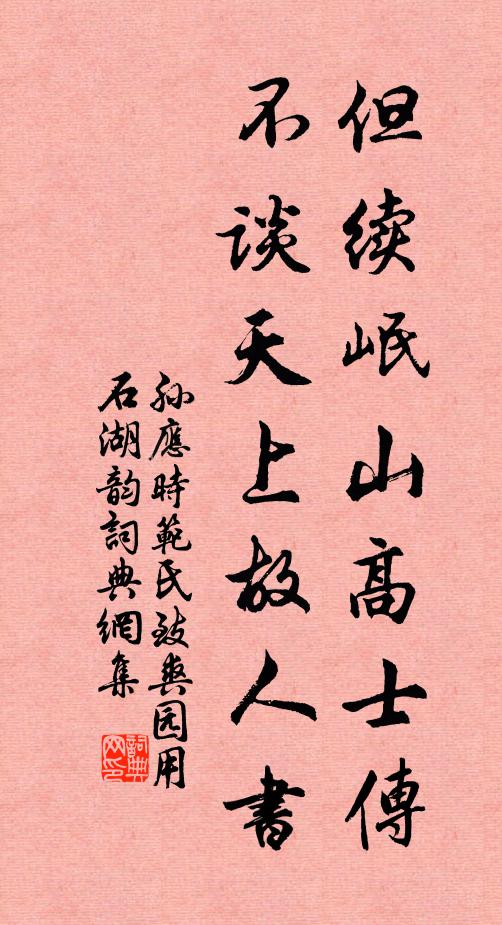 但续岷山高士傳
不谈天上故人書
孙應時範氏致爽园用
石湖韵詞典網集
詞典网印